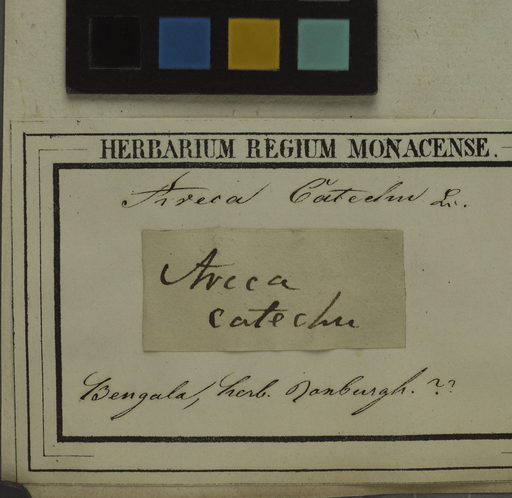 HERBARIUM REGIUM MONACENSE.
Areca Catechu L.
Areca
catechu
Bengala, herb. Roxburgh. ??